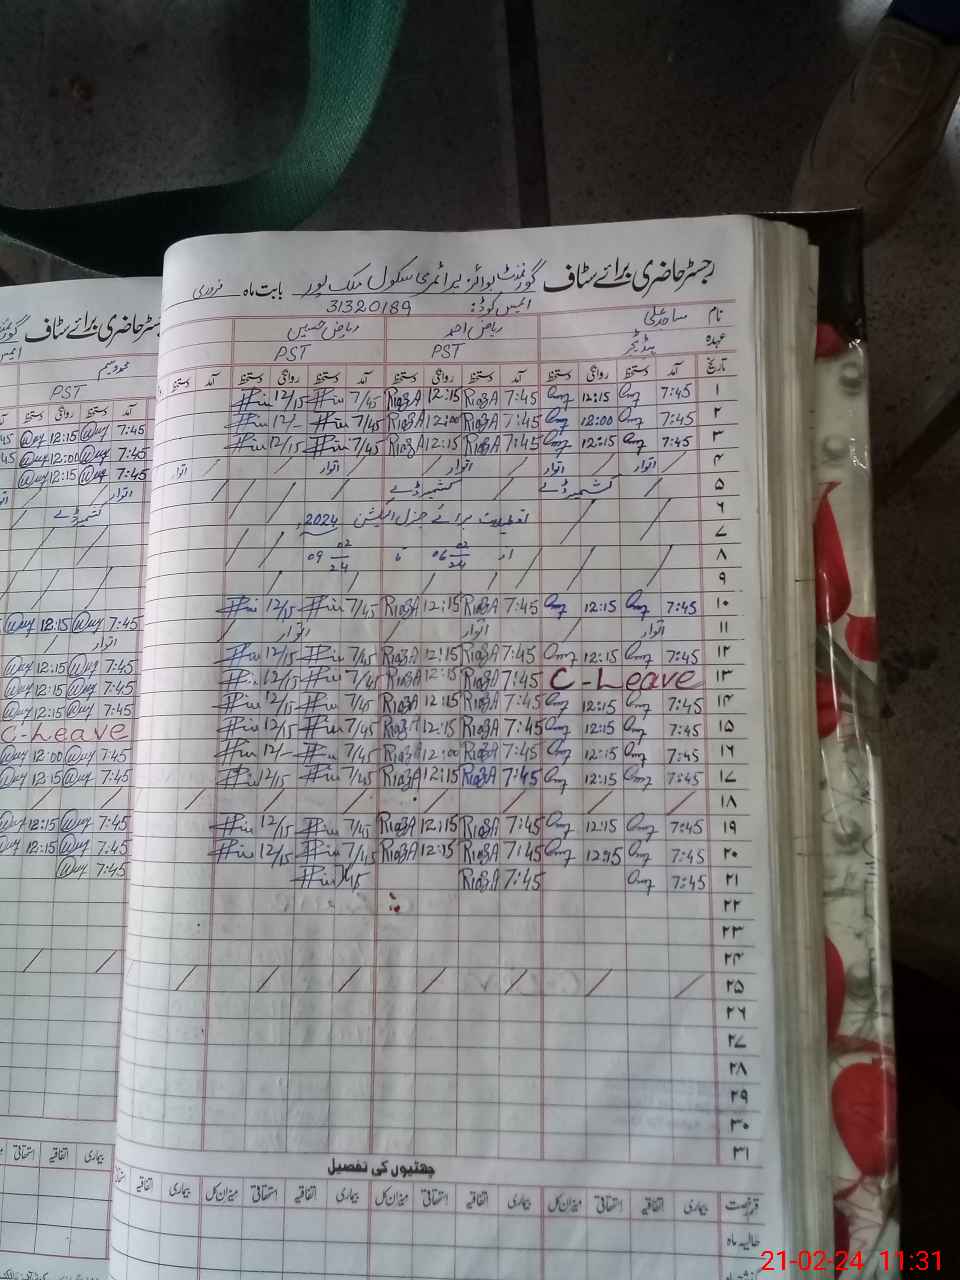 رجسٹر حاضری برائے سٹاف گورنمنٹ بوائز پرائمری سکول ملک پور بابت ماہ فروری
ایمس کوڈ: 31320189
نام ساجد علی ریاض احمد ریاض حسین
عہدہ ہیڈ ٹیچر PST PST
تاریخ آمد دستخط روانگی دستخط آمد دستخط روانگی دستخط آمد دستخط روانگی دستخط آمد دستخط
۱ 7:45 12:15 7:45 RiazA 12:15 RiazA 7/45 12/15
۲ 7:45 12:00 7:45 RiazA 12:00 RiazA 7/45 12/-
۳ 7:45 12:15 7:45 RiazA 12:15 RiazA 7/45 12/15
۴ اتوار اتوار اتوار اتوار اتوار
۵ کشمیر ڈے کشمیر ڈے
۶ تعطیلات برائے جنرل الیکشن 2024
۷
۸ از 06 02/24 تا 09 02/24
۹
۱۰ 7:45 12:15 7:45 RiazA 12:15 RiazA 7/45 12/15
۱۱ اتوار اتوار اتوار
۱۲ 7:45 12:15 7:45 RiazA 12:15 RiazA 7/45 12/15
۱۳ C-Leave 7:45 RiazA 12:15 RiazA 7/45 12/15
۱۴ 7:45 12:15 7:45 RiazA 12:15 RiazA 7/45 12/15
۱۵ 7:45 12:15 7:45 RiazA 12:15 RiazA 7/45 12/15
۱۶ 7:45 12:15 7:45 RiazA 12:00 RiazA 7/45 12/-
۱۷ 7:45 12:15 7:45 RiazA 12:15 RiazA 7/45 12/15
۱۸
۱۹ 7:45 12:15 7:45 RiazA 12:15 RiazA 7/45 12/15
۲۰ 7:45 12:15 7:45 RiazA 12:15 RiazA 7/45 12/15
۲۱ 7:45 7:45 RiazA 7/45
۲۲
۲۳
۲۴
۲۵
۲۶
۲۷
۲۸
۲۹
۳۰
۳۱
چھٹیوں کی تفصیل
قسم رخصت بیماری اتفاقیہ استحقاقی میزان کل بیماری اتفاقیہ استحقاقی میزان کل بیماری اتفاقیہ استحقاقی میزان کل بیماری اتفاقیہ
حالیہ ماہ
رجسٹر حاضری برائے سٹاف
محمد وسیم
PST
آمد دستخط روانگی دستخط
7:45 12:15
7:45 12:00
7:45 12:15
اتوار
کشمیر ڈے
7:45 12:15
اتوار
7:45 12:15
7:45 12:15
7:45 12:15
C-Leave
7:45 12:00
7:45 12:15
7:45 12:15
7:45 12:15
7:45
بیماری اتفاقیہ استحقاقی
21-02-24 11:31